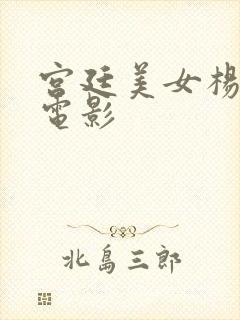 宫廷美女楊
電影
北島三郎